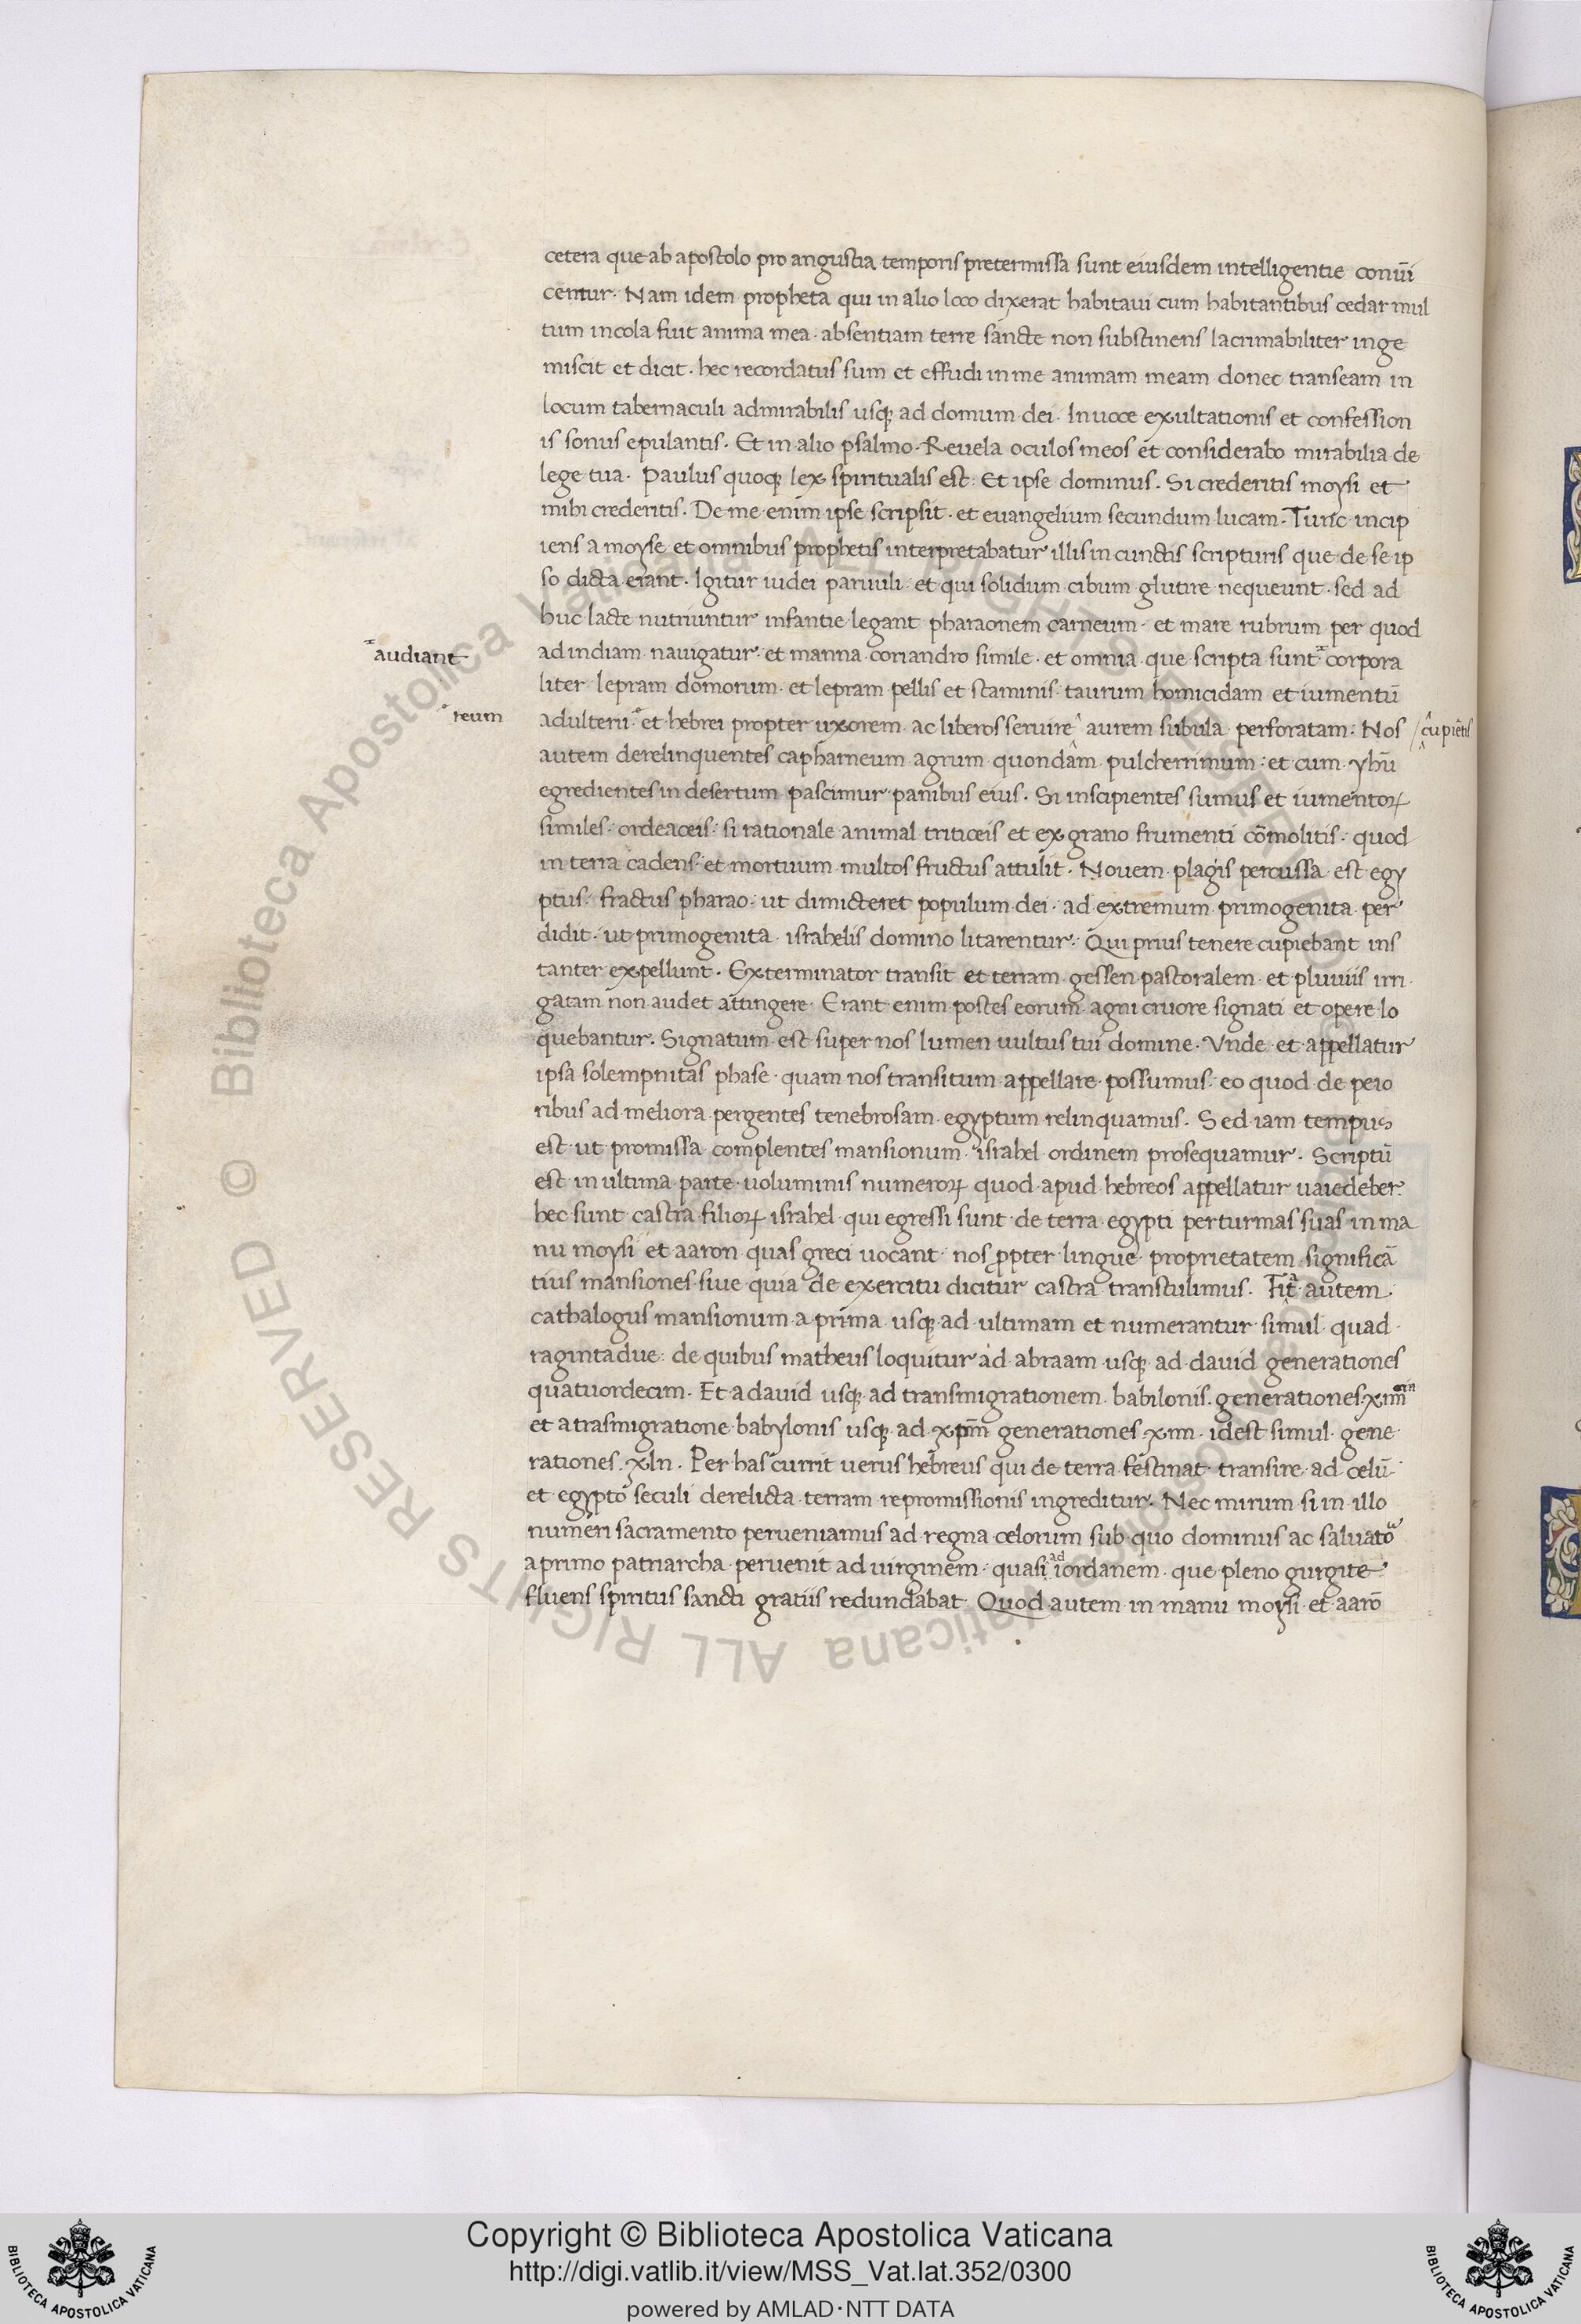 cetera que ab apostolo pro angustia temporis pretermissa sunt eiusdem intelligentie conuı̄i
centur. Nam idem propheta qui in alio loco dixerat habitaui cum habitantibus cedar mul
tum incola fuit anima mea · absentiam terre sancte non substinens lacrimabiliter inge
miscit et dicit · hec recordatus sum et effudi in me animam meam donec transeam in
locum tabernaculi admirabilis usq; ad domum dei. In uoce exultationis et confession
is sonus epulantis. Et in alio psalmo. Reuela oculos meos et considerabo mirabilia de
lege tua. Paulus quoq; lex spiritualis est. Et ipse dominus. Si crederitis moysi et
mihi crederitis. De me enim ipse scripsit · et euangelium secundum lucam. Tunc incip
iens a moyse et omnibus prophetis interpretabatur illis in cunctis scripturis que de se ip
so dicta erant. Igitur iudei paruuli · et qui solidum cibum glutire nequeunt · sed ad
huc lacte nutriuntur infantie legant pharaonem carneum · et mare rubrum per quod
audiant
ad indiam nauigatur · et manna coriandro simile · et omnia que scripta sunt corpora
liter lepram domorum · et lepram pellis et staminis · taurum homicidam et iumentū
reum
adulterii et hebrei propter uxorem ac liberos seruire aurem subula perforatam: Nos
cupiētis
autem derelinquentes capharneum agrum quondam pulcherrimum: et cum yhū
egredientes in desertum pascimur panibus eius. Si inscipientes sumus et iumentoꝝ
similes: ordeaceis: si rationale animal triticeis et ex grano frumenti cōmolitis: quod
in terra cadens: et mortuum multos fructus attulit. Nouem plagis percussa est egy
ptus: fractus pharao: ut dimicteret populum dei · ad extremum primogenita per
didit · ut primogenita israhelis domino litarentur: Qui prius tenere cupiebant ins
tanter expellunt. Exterminator transit et terram gessen pastoralem et pluuiis irri
gatam non audet attingere. Erant enim postes eorum agni cruore signati et opere lo
quebantur. Signatum est super nos lumen uultus tui domine. Vnde et appellatur
ipsa solempnitas phase quam nos transitum appellare possumus: eo quod de peio
ribus ad meliora pergentes tenebrosam egyptum relinquamus. Sed iam tempus
est ut promissa complentes mansionum israhel ordinem prosequamur. Scriptū
est in ultima parte uoluminis numeroꝝ quod apud hebreos appellatur uaiedeber:
hec sunt castra filioꝝ israhel qui egressi sunt de terra egypti per turmas suas in ma
nu moysi et aaron quas greci uocant nos ꝓpter lingue proprietatem significā
tius mansiones siue quia de exercitu dicitur castra transtulimus. Fit autem
cathalogus mansionum a prima usq; ad ultimam et numerantur simul quad
raginta due: de quibus matheus loquitur ad abraam usq; ad dauid generationes
quatuordecim. Et a dauid usq; ad transmigrationem babilonis generationes xiiii
et a trasmigratione babylonis usq; ad xp̄m generationes xiiii · idest simul gene
rationes xlii. Per has currit uerus hebreus qui de terra festinat transire ad celū
et egypto seculi derelicta terram repromissionis ingreditur. Nec mirum si in illo
numeri sacramento perueniamus ad regna celorum sub quo dominus ac saluato
a primo patriarcha peruenit ad uirginem · quasi ad iordanem que pleno gurgite
fluens spiritus sancti gratiis redundabat. Quod autem in manu moysi et aarō
Copyright © Biblioteca Apostolica Vaticana
http://digi.vatlib.it/view/MSS_Vat.lat.352/0300
powered by AMLAD·NTT DATA
BIBLIOTECA APOSTOLICA VATICANA
BIBLIOTECA APOSTOLICA VATICANA
© Biblioteca Apostolica Vaticana ALL RIGHTS RESERVED